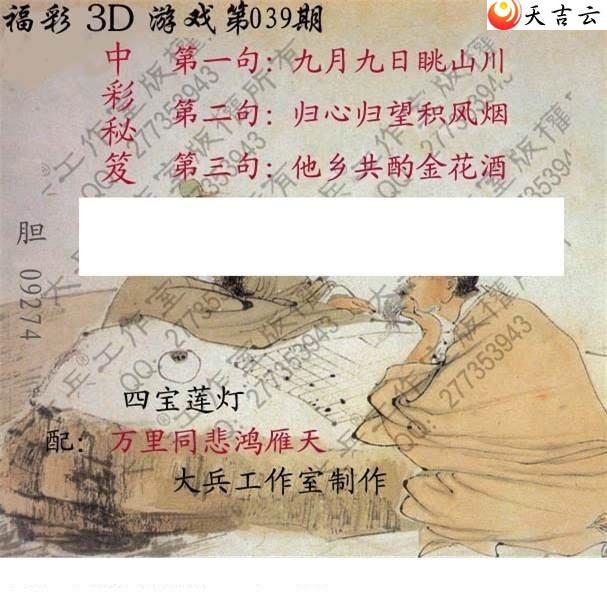 福彩 3D 游戏 第039期
天吉云
中彩秘笈
第一句：九月九日眺山川
第二句：归心归望积风烟
第三句：他乡共酌金花酒
胆 09274
四宝莲灯
配：万里同悲鸿雁天
大兵工作室制作
大兵®工作室版權所有
QQ：277353943